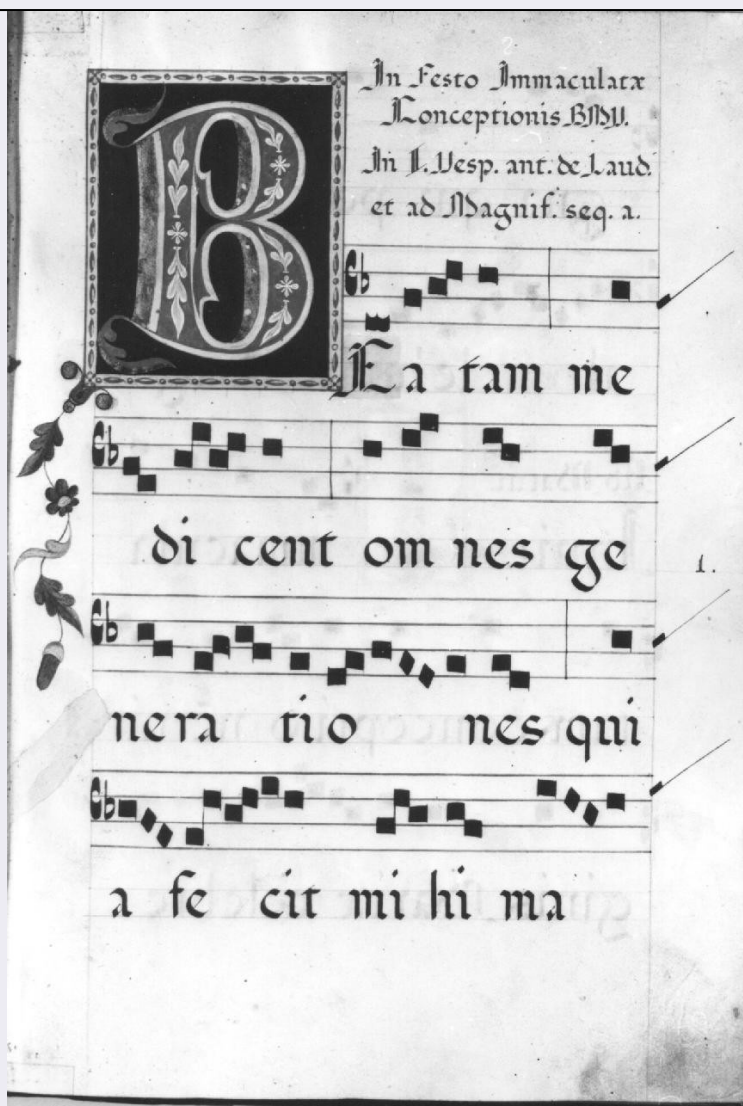 In Festo Immaculatæ
Conceptionis BMV.
In I. Vesp. ant. de Laud.
et ad Magnif. seq. a.
BEa tam me
di cent om nes ge
1.
ne ra tio nes qui
a fe cit mi hi ma